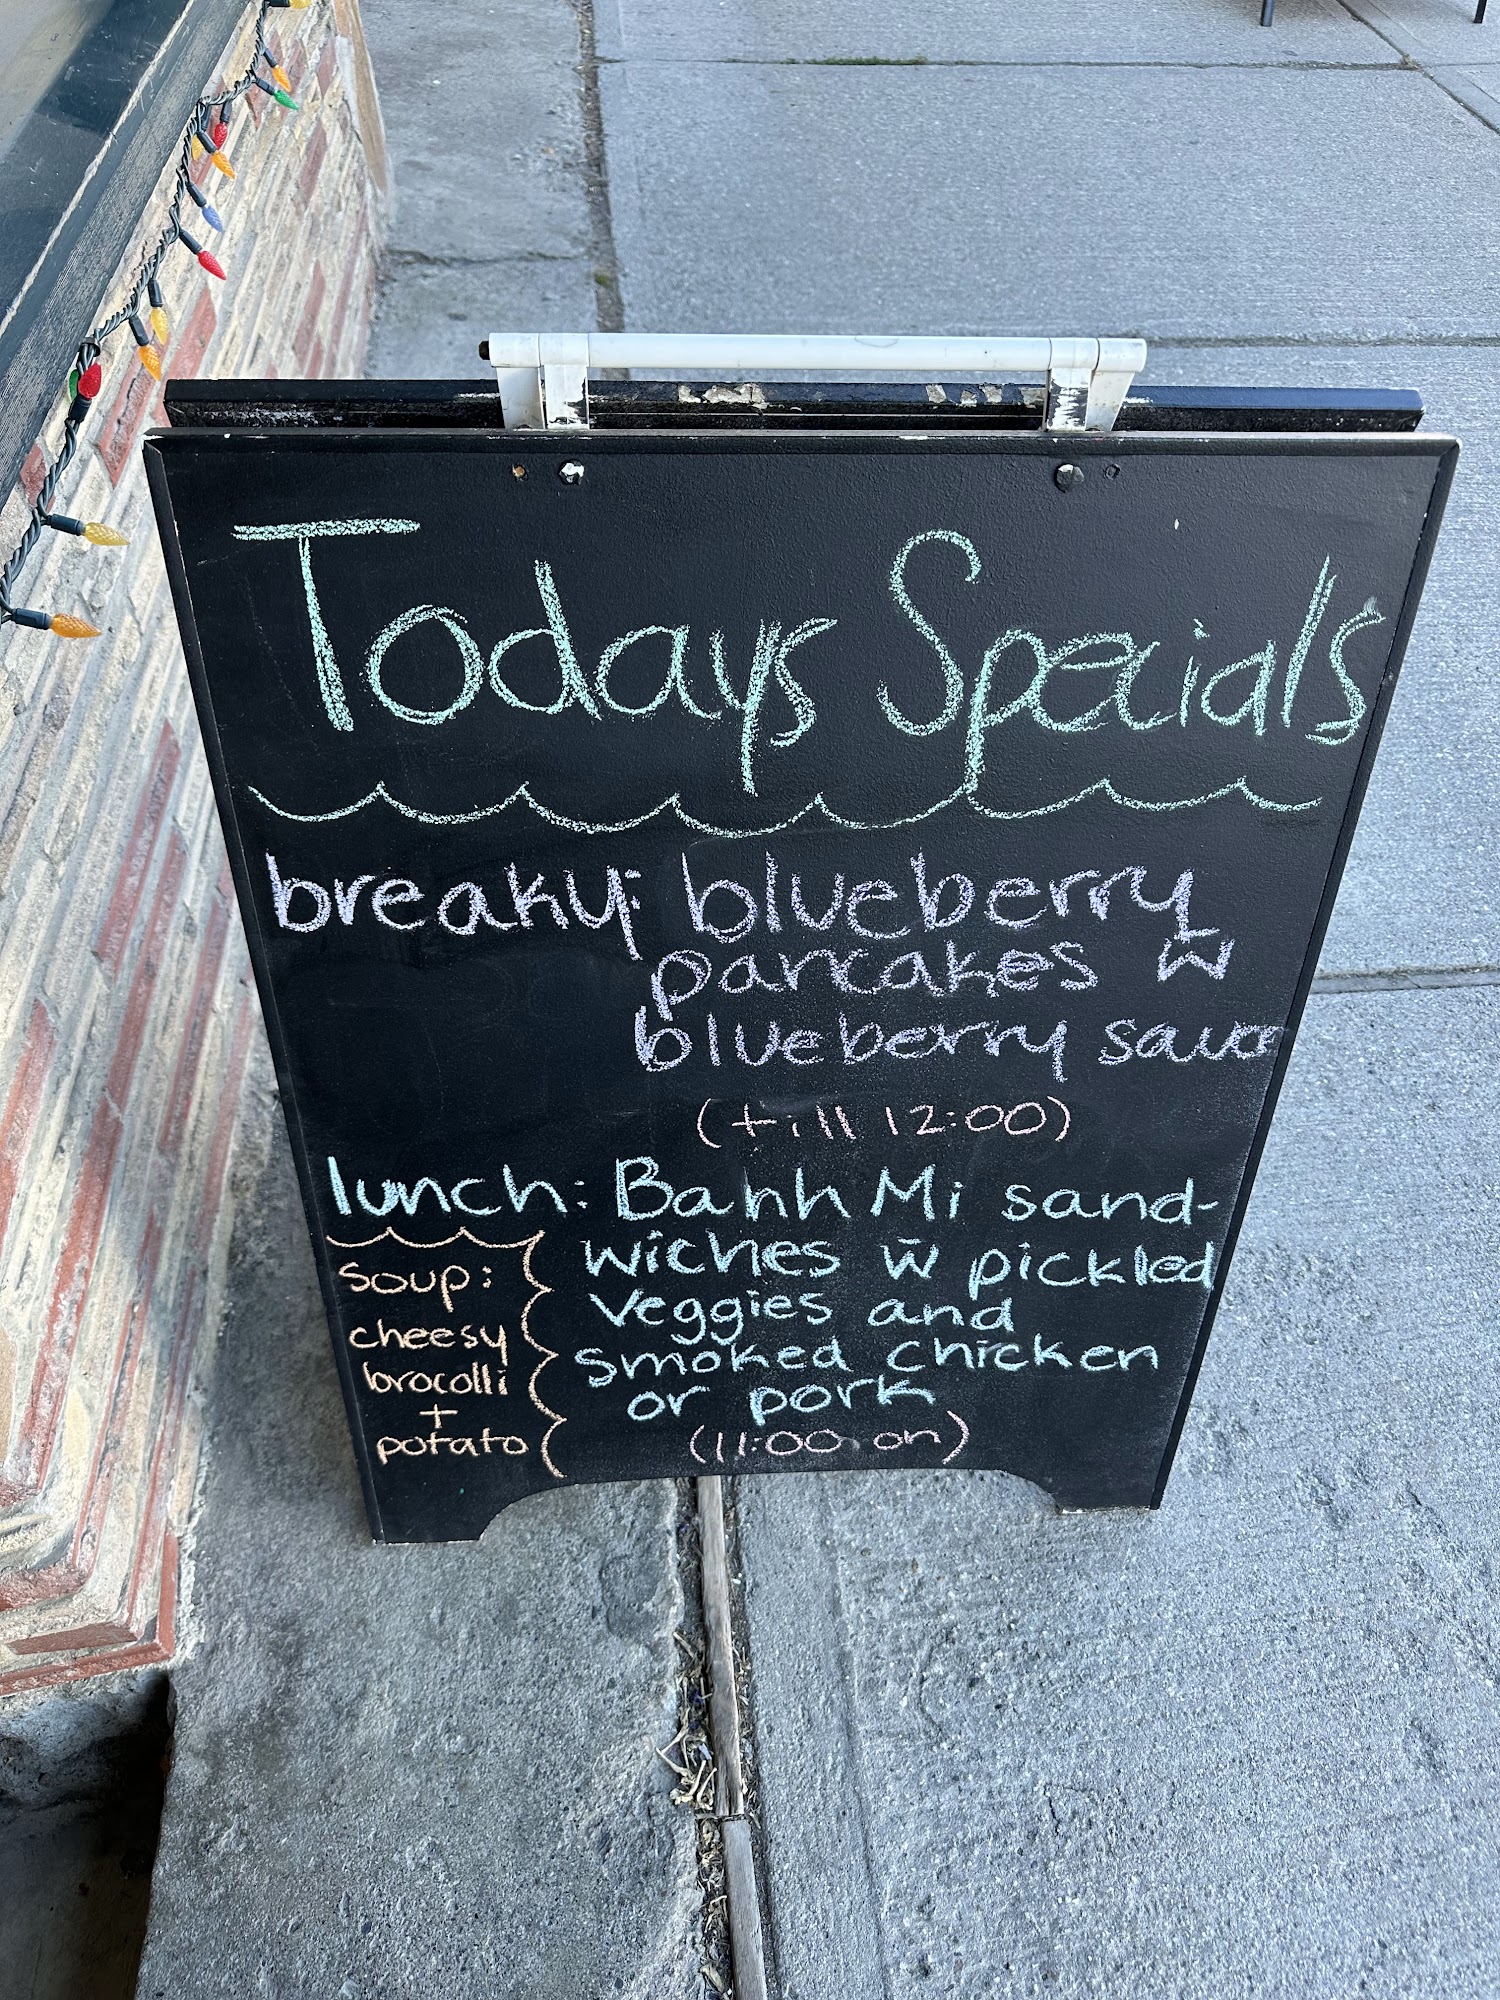 Todays Specials
breaky: blueberry
pancakes w̄
blueberry sauce
(till 12:00)
lunch: Banh Mi sand-
wiches w̄ pickled
veggies and
smoked chicken
or pork
(11:00 on)
soup:
cheesy
brocolli
+
potato